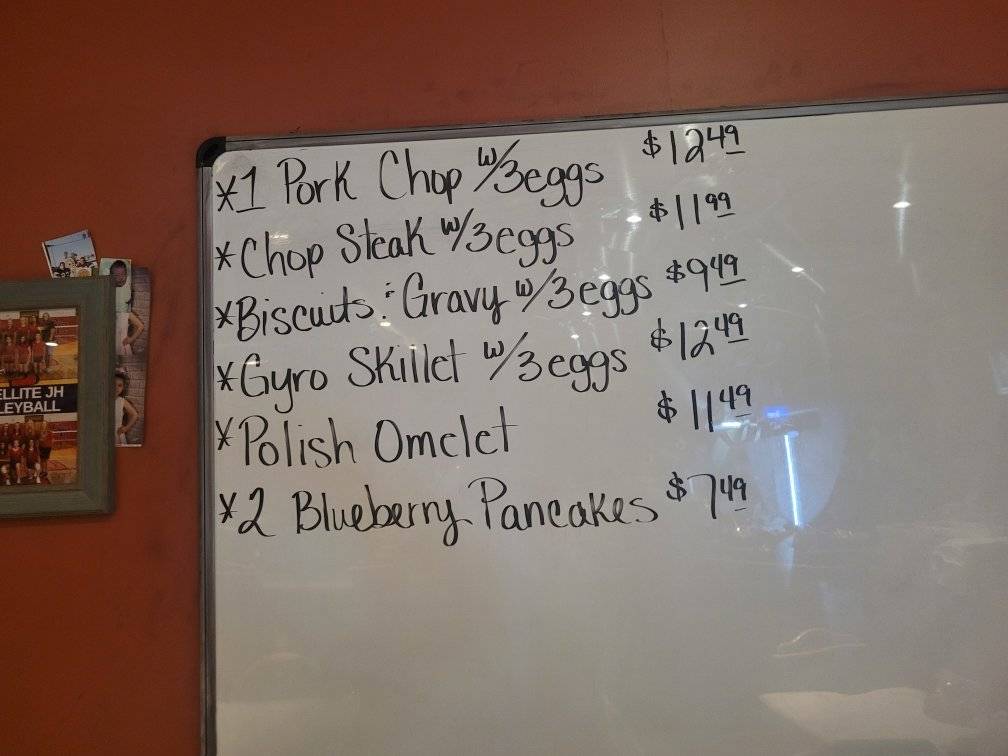 *1 Pork Chop w/3eggs $12.49
*Chop Steak w/3eggs $11.99
*Biscuits & Gravy w/3eggs $9.49
*Gyro Skillet w/3eggs $12.49
*Polish Omelet $11.49
*2 Blueberry Pancakes $7.49
ELLITE JH
LEYBALL